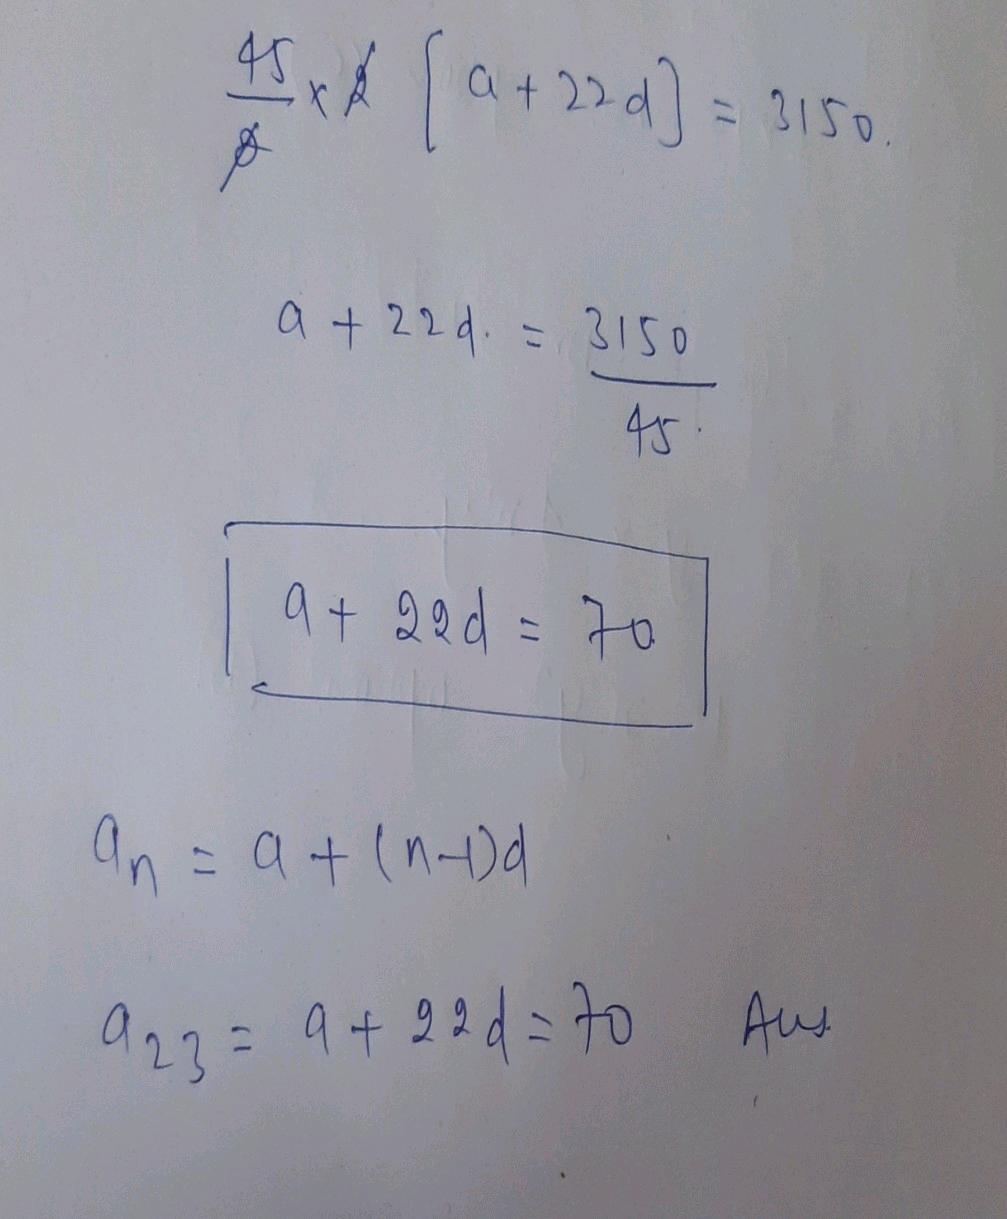 45/2 × 2 [a + 22d] = 3150.
a + 22d. = 3150/45.
a + 22d = 70
an = a + (n-1)d
a23 = a + 22d = 70 Ans